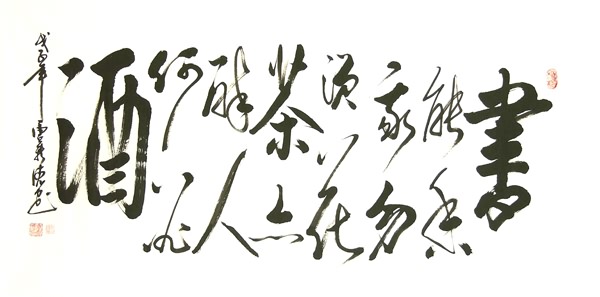 書
能香
我勿
須花
茶亦
醉人
何必
酒
戊子年